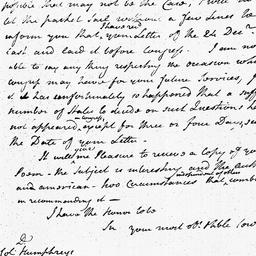 possible that may not be the Case, I will
let the packet Sail without a few Lines to
inform you that I have recd. your Letter of the 24 Decr.
last and laid it before Congress. I am no
able to say any thing respecting the occasion wh
congress may have for your future Services, f
it has unfortunately so happened that a suff
number of States to decide on such Questions ha
not appeared in Congress, except for three or four Days, sin
the Date of your Letter.
It will give me Pleasure to receive a copy of yo
Poem - the Subject is interesting and the auth
and american - two Circumstances that, independent of others comb
in recommending it -
I have the Honor to be
Your most obt. & hble Serv
Col. Humphreys